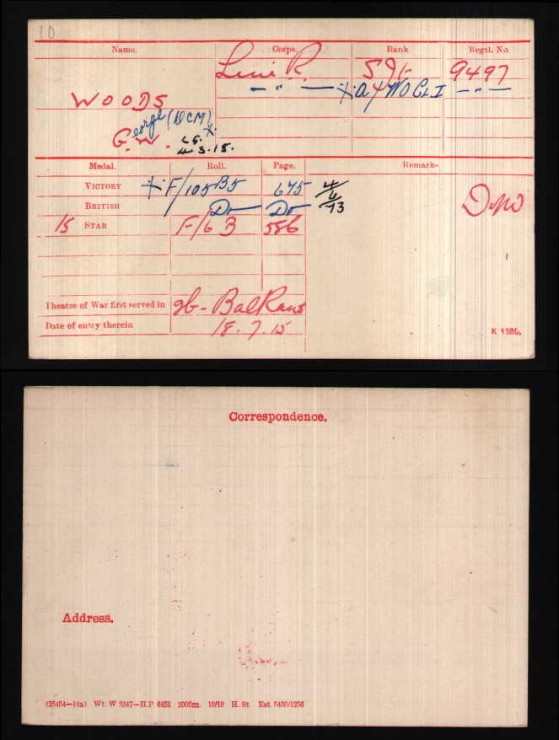 10
Name. Corps. Rank Regtl. No.
Linc R. Sjt. 9497
WOODS — " — X A/WO CL I — " —
George (DCM) X
G.W. LG. 4.3.15.
Medal. Roll. Page. Remarks
VICTORY X F/105 B5 675 4/6/73
BRITISH Do Do
15 STAR F/6 B 586
Theatre of War first served in 2b - Balkans
Date of entry therein 18.7.15
K 1380.
Correspondence.
Address.
(25454—14a) Wt. W 3347—H.P. 6451 2000m. 10/19 H. St Est. 5450/1256